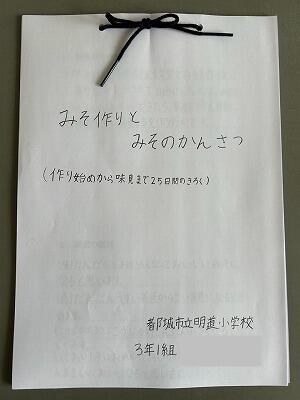 みそ作りと
みそのかんさつ
(作り始めから味見まで25日間のきろく)
都城市立明道小学校
3年1組